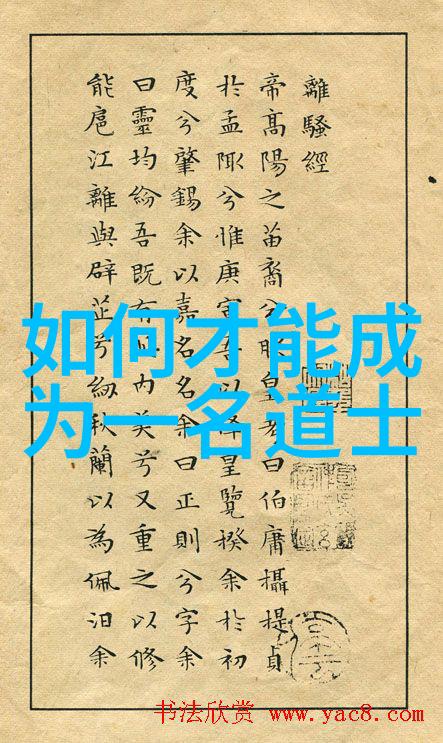 離騷經
帝高陽之苗裔兮朕皇考曰伯庸攝提貞
於孟陬兮惟庚寅吾以降皇覽揆余於初
度兮肇錫余以嘉名名余曰正則兮字余
曰靈均紛吾既有此內美兮又重之以修
能扈江離與辟芷兮紉秋蘭以為佩汩余
如何才能成
为一名道士
书法欣赏 www.yac8.com